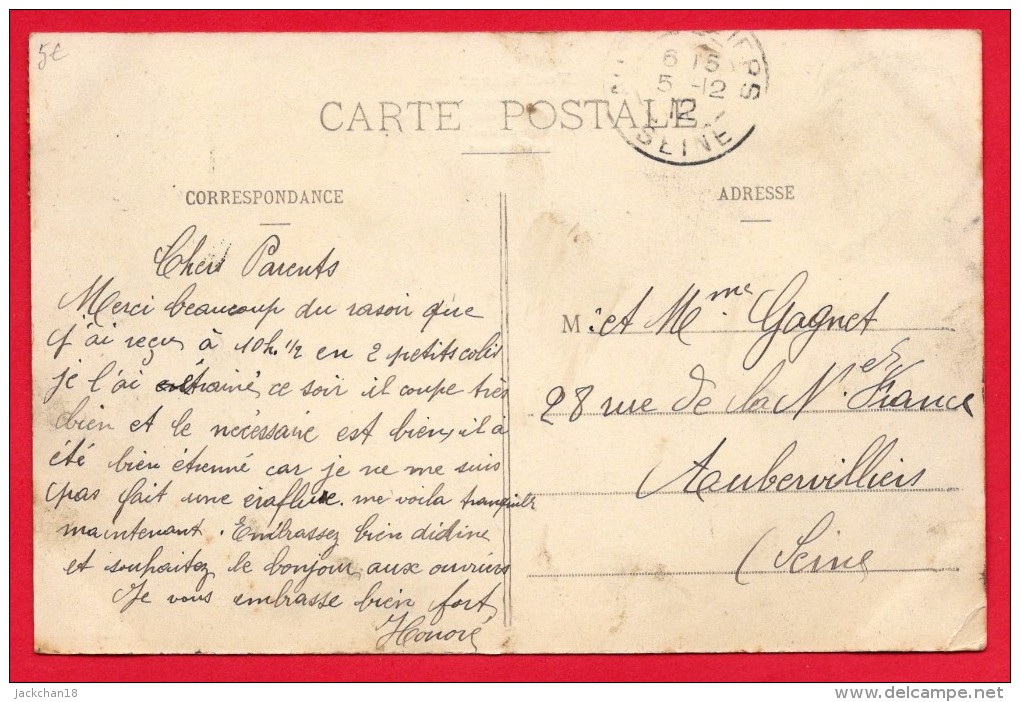 5€
6 15
5 -12
12
SEINE
CARTE POSTALE
CORRESPONDANCE
ADRESSE
Chers Parents
Merci beaucoup du rasoir que
j'ai reçu à 10h. 1/2 en 2 petits colis
je l'ai étrainé ce soir il coupe très
bien et le nécessaire est bien, il a
été bien étrenné car je ne me suis
pas fait une éraflure. me voila tranquille
maintenant. Embrassez bien didine
et souhaitez le bonjour aux ouvriers
Je vous embrasse bien fort
Honoré
M. et Mme Gagnet
28 rue de la Nelle France
Aubervilliers
(Seine
jackchan18
www.delcampe.net